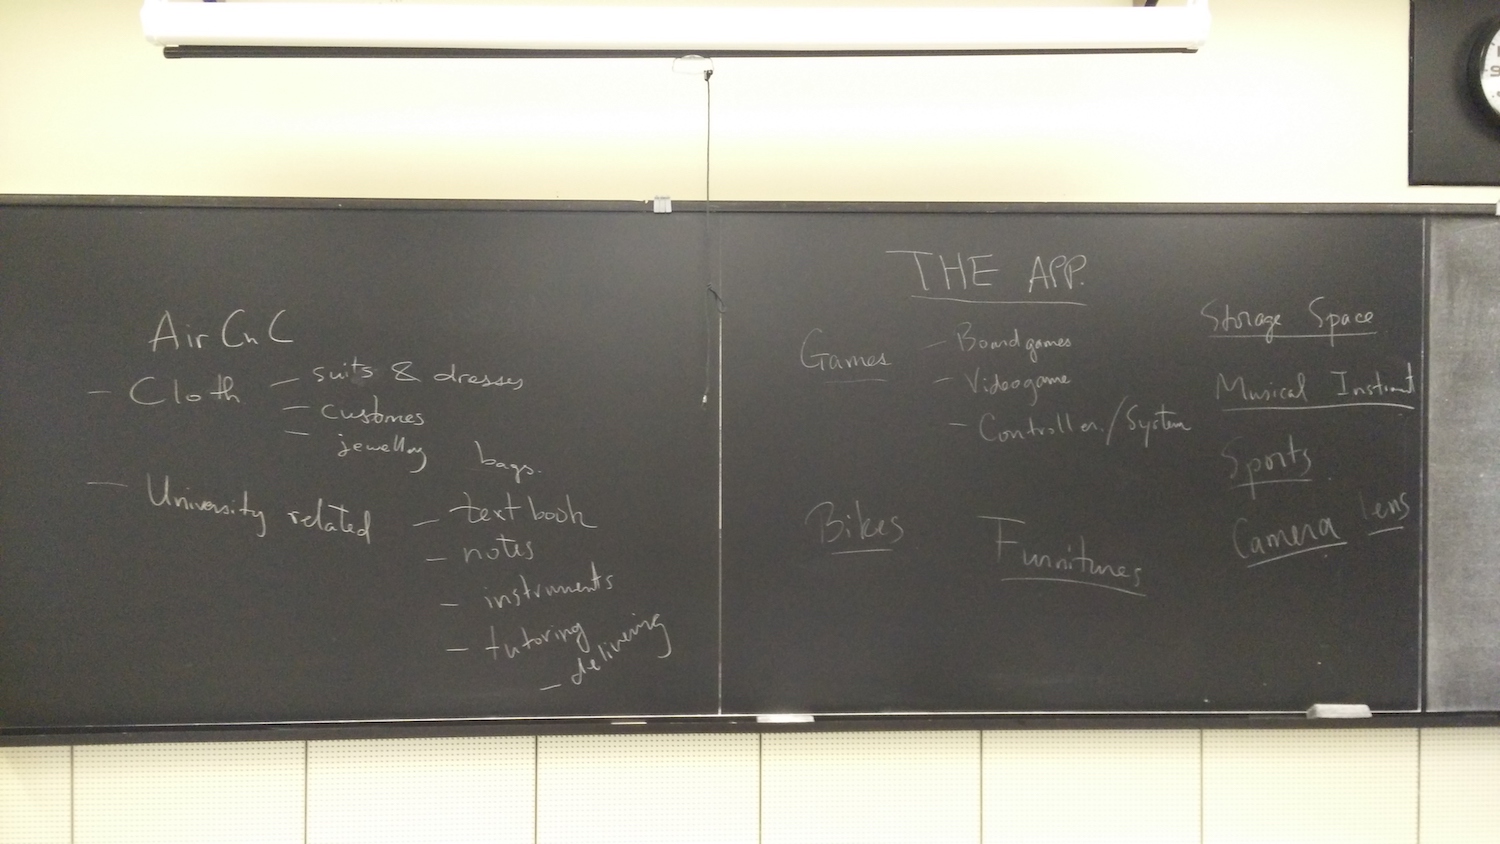 Air CnC
- Cloth - suits & dresses
- customes
- jewellry bags.
- University related - textbook
- notes
- instruments
- tutoring
- delivering
THE APP.
Games - Boardgames
- Videogame
- Controller/System
Bikes
Furnitures
Storage Space
Musical Instrument
Sports
Camera lens
9